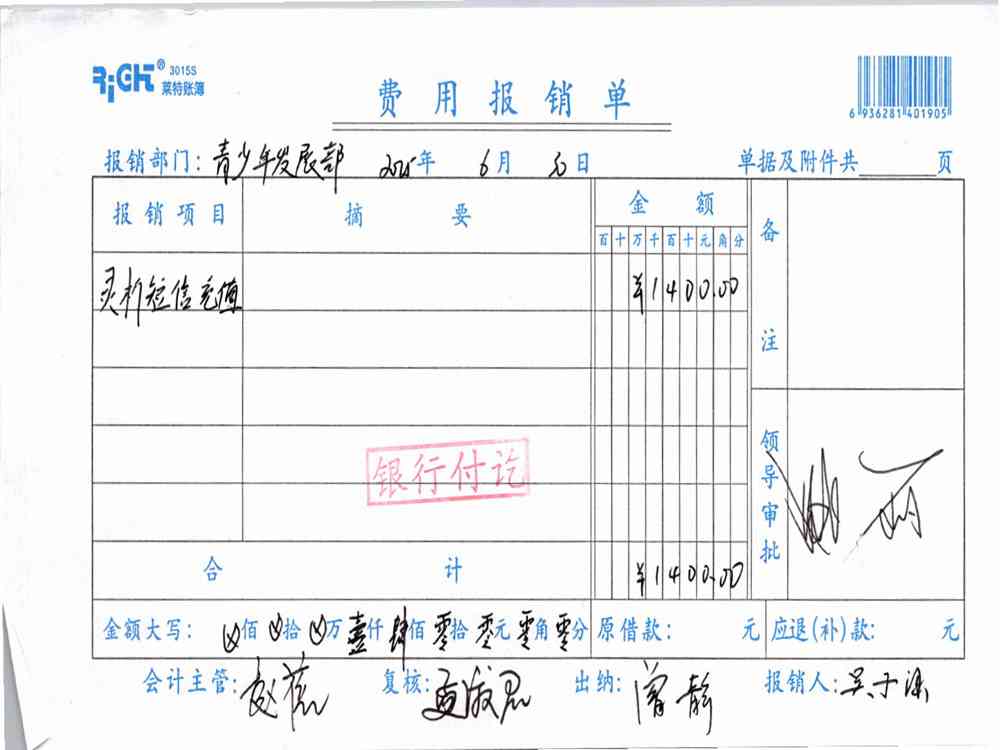 RiGHT® 3015S
莱特账簿
费用报销单
6 936281 401905
报销部门：青少年发展部 2025年 6月 30日 单据及附件共 页
报销项目 摘要 金额 备注
百十万千百十元角分
灵析短信充值 ¥1400.00
银行付讫
领导审批
合计 ¥1400.00
金额大写： 佰 拾 万 壹仟 肆佰 零拾 零元 零角 零分 原借款： 元 应退(补)款： 元
会计主管： 复核： 出纳：曾静 报销人：